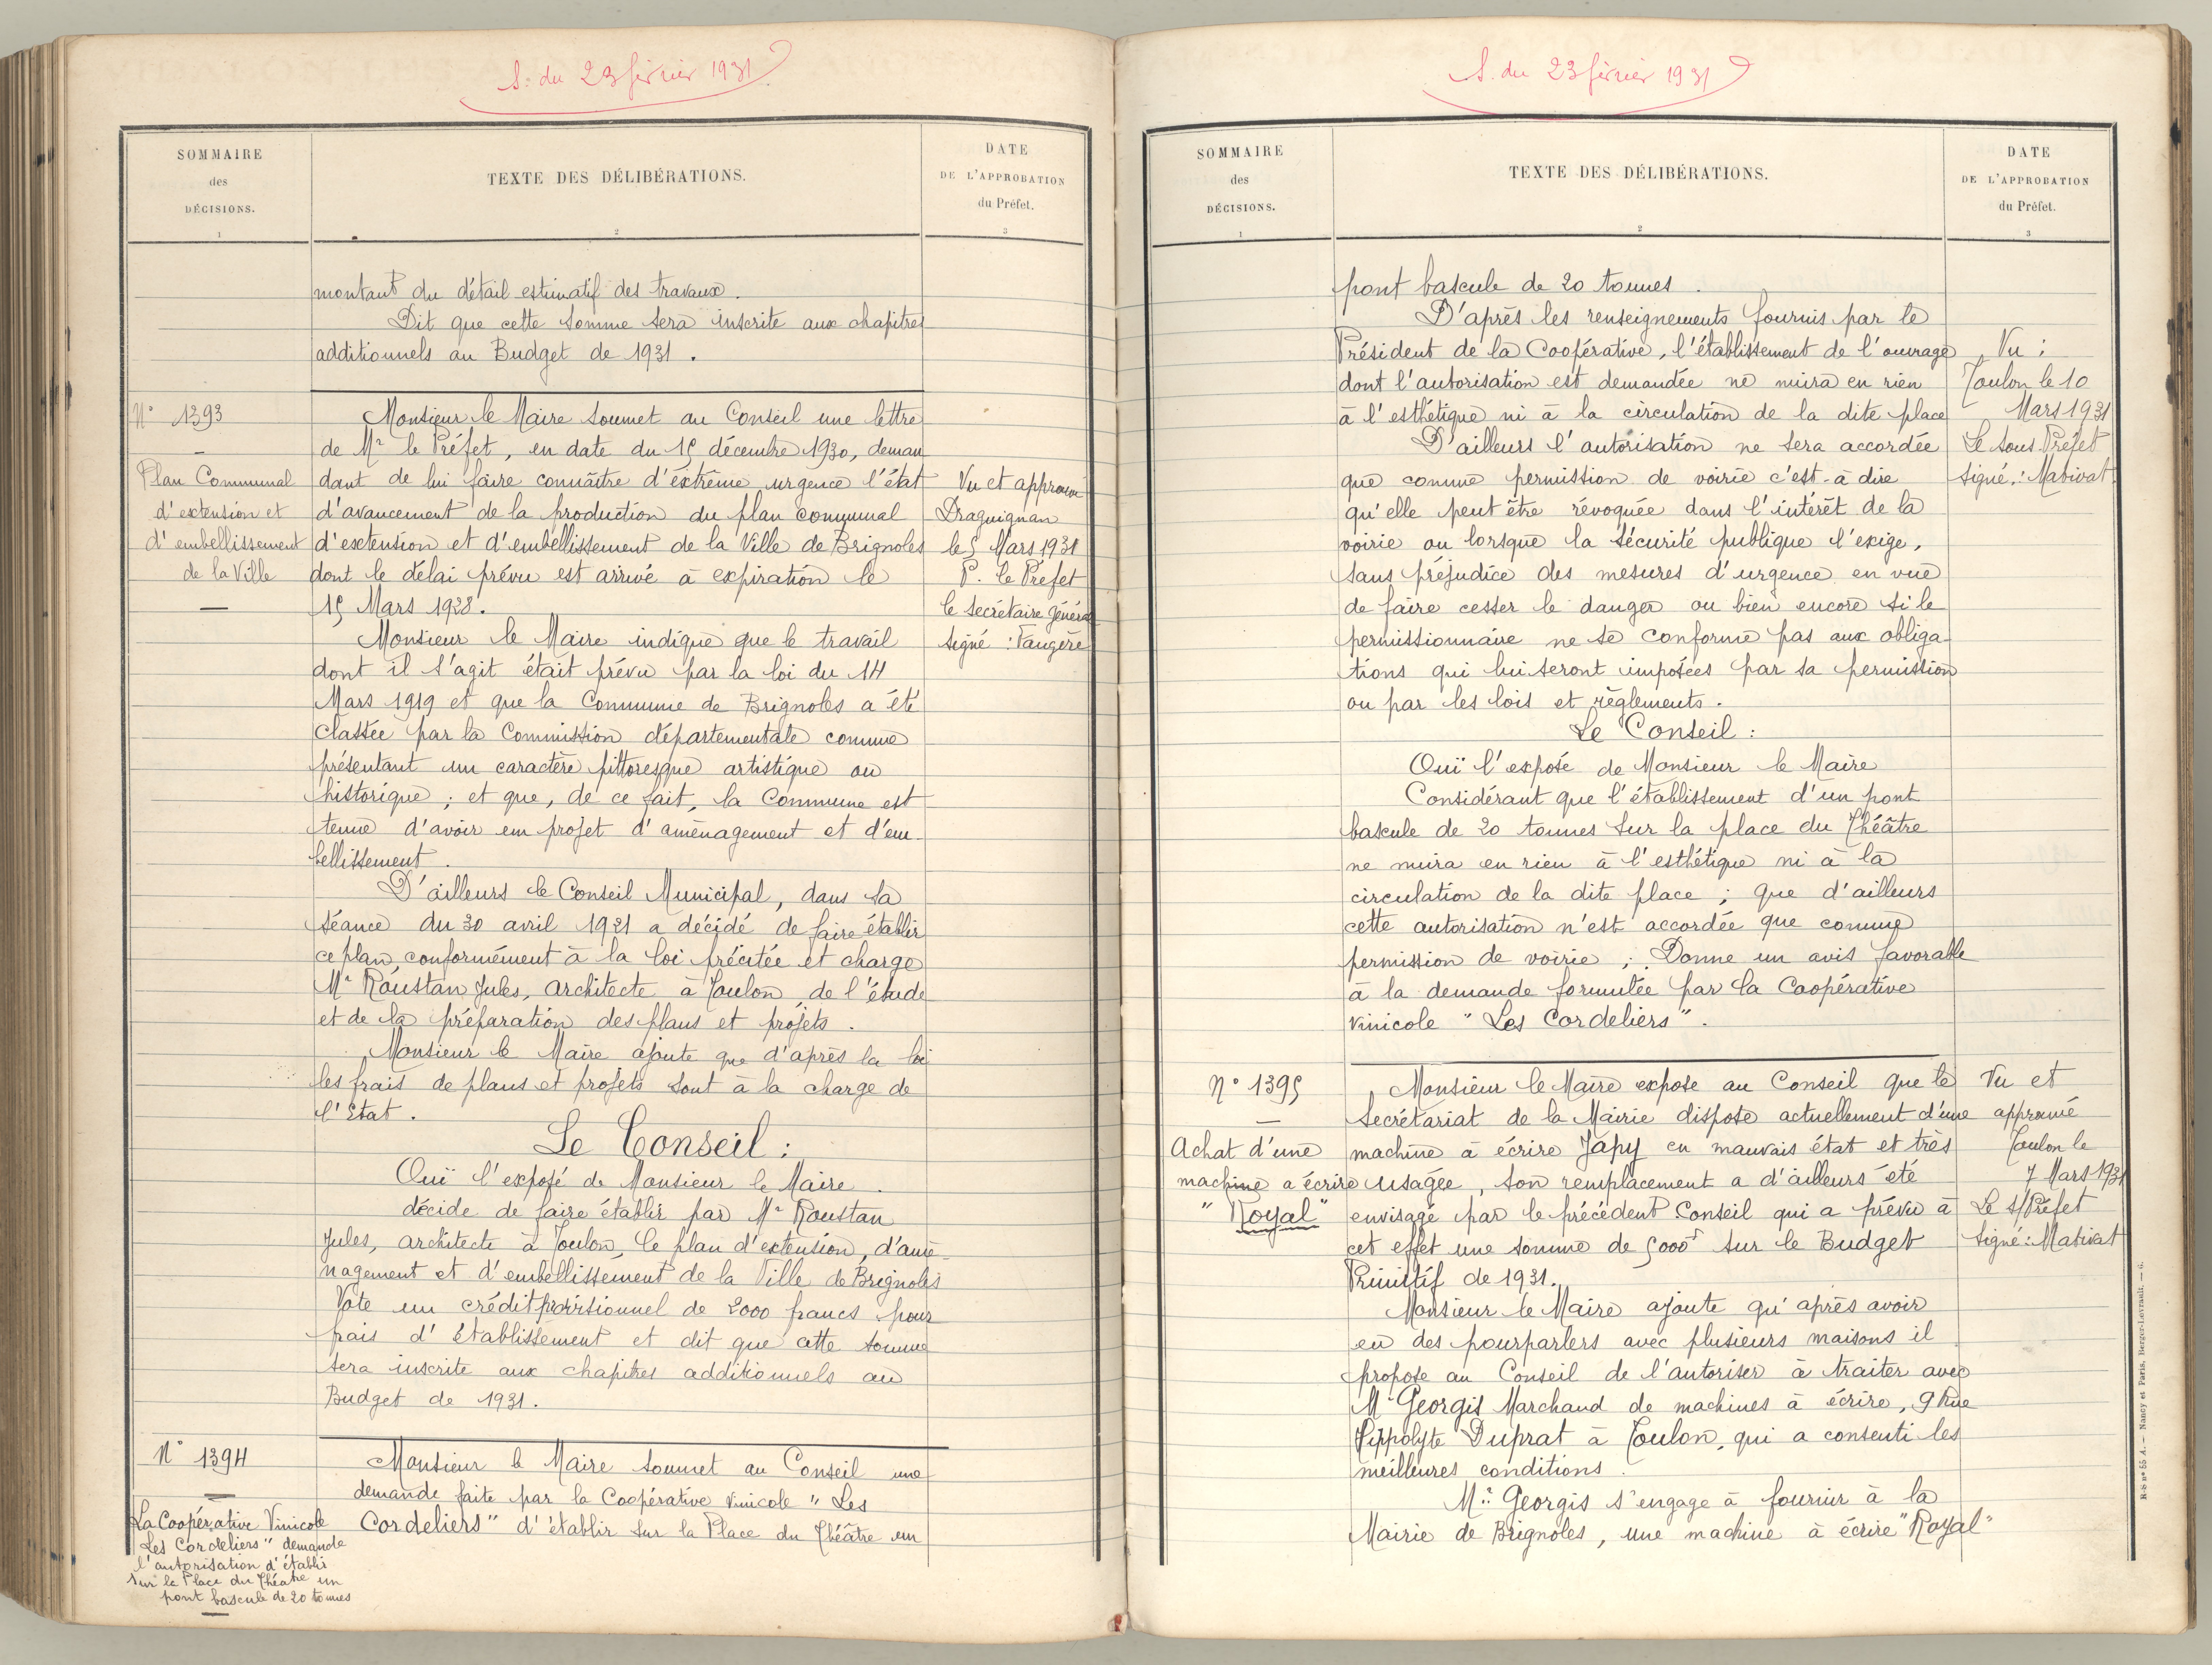 S. du 23 février 1931
SOMMAIRE
des
DÉCISIONS.
1
TEXTE DES DÉLIBÉRATIONS.
2
DATE
DE L'APPROBATION
du Préfet.
3
montant du détail estimatif des travaux.
Dit que cette somme sera inscrite aux chapitres
additionnels au Budget de 1931.
N° 1393
Plan Communal
d'extension et
d'embellissement
de la Ville
Monsieur le Maire soumet au Conseil une lettre
de Mr le Préfet, en date du 15 décembre 1930, deman
dant de lui faire connaître d'extrême urgence l'état
d'avancement de la production du plan communal
d'extension et d'embellissement de la Ville de Brignoles
dont le délai prévu est arrivé à expiration le
15 Mars 1928.
Monsieur le Maire indique que le travail
dont il s'agit était prévu par la loi du 14
Mars 1919 et que la Commune de Brignoles a été
classée par la Commission départementale comme
présentant un caractère pittoresque artistique ou
historique ; et que, de ce fait, la Commune est
tenue d'avoir un projet d'aménagement et d'em-
bellissement.
D'ailleurs le Conseil Municipal, dans sa
séance du 30 avril 1921 a décidé de faire établir
ce plan conformément à la loi précitée et charge
Mr Roustan Jules, architecte à Toulon, de l'étude
et de la préparation des plans et projets.
Monsieur le Maire ajoute que d'après la loi
les frais de plans et projets sont à la charge de
l'Etat.
Le Conseil :
Ouï l'exposé de Monsieur le Maire.
décide de faire établir par Mr Roustan
Jules, architecte à Toulon, le plan d'extension, d'amé-
nagement et d'embellissement de la Ville de Brignoles
Vote un crédit provisionnel de 2000 francs pour
frais d'établissement et dit que cette somme
sera inscrite aux chapitres additionnels au
Budget de 1931.
Vu et approuvé
Draguignan
le 5 Mars 1931
P. le Préfet
le secrétaire général
signé : Faugère
N° 1394
La Coopérative Vinicole
Les Cordeliers" demande
l'autorisation d'établir
sur la Place du Théatre un
pont bascule de 20 tonnes
Monsieur le Maire soumet au Conseil une
demande faite par la Coopérative Vinicole "Les
Cordeliers" d'établir sur la Place du Théâtre un
S. du 23 février 1931
SOMMAIRE
des
DÉCISIONS.
1
TEXTE DES DÉLIBÉRATIONS.
2
DATE
DE L'APPROBATION
du Préfet.
3
pont bascule de 20 tonnes.
D'après les renseignements fournis par le
Président de la Coopérative, l'établissement de l'ouvrage
dont l'autorisation est demandée ne nuira en rien
à l'esthétique ni à la circulation de la dite place
D'ailleurs l'autorisation ne sera accordée
que comme permission de voirie c'est-à dire
qu'elle peut être révoquée dans l'intérêt de la
voirie ou lorsque la sécurité publique l'exige,
sans préjudice des mesures d'urgence en vue
de faire cesser le danger ou bien encore si le
permissionnaire ne se conforme pas aux obliga-
tions qui lui seront imposées par sa permission
ou par les lois et règlements.
Le Conseil :
Ouï l'exposé de Monsieur le Maire
Considérant que l'établissement d'un pont
bascule de 20 tonnes sur la place du Théâtre
ne nuira en rien à l'esthétique ni à la
circulation de la dite place ; que d'ailleurs
cette autorisation n'est accordée que comme
permission de voirie ; Donne un avis favorable
à la demande formulée par la Coopérative
Vinicole "Les Cordeliers".
Vu :
Toulon le 10
Mars 1931
Le sous Préfet
signé : Mativat.
N° 1395
Achat d'une
machine à écrire
"Royal"
Monsieur le Maire expose au Conseil que le
Secrétariat de la Mairie dispose actuellement d'une
machine à écrire Japy en mauvais état et très
usagée, son remplacement a d'ailleurs été
envisagé par le précédent Conseil qui a prévu à
cet effet une somme de 5000f sur le Budget
Primitif de 1931.
Monsieur le Maire ajoute qu'après avoir
eu des pourparlers avec plusieurs maisons il
propose au Conseil de l'autoriser à traiter avec
Mr Georgis Marchand de machines à écrire, 9 Rue
Hippolyte Duprat à Toulon, qui a consenti les
meilleures conditions.
Mr Georgis s'engage à fournir à la
Mairie de Brignoles, une machine à écrire "Royal"
Vu et
approuvé
Toulon le
7 Mars 1931
Le s/Préfet
signé : Mativat
R-S n° 55 A. — Nancy et Paris, Berger-Levrault. — 6.